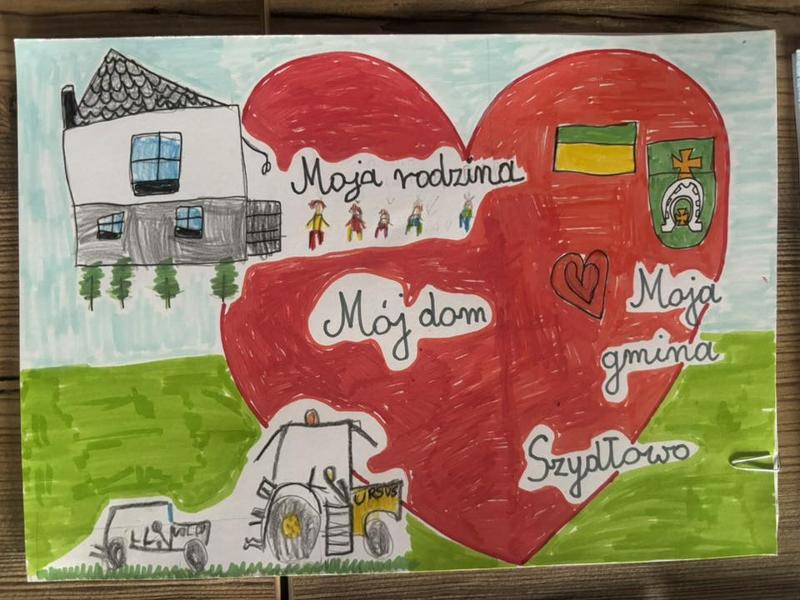 Moja rodzina
Mój dom
Moja
gmina
Szydłowo
URSUS